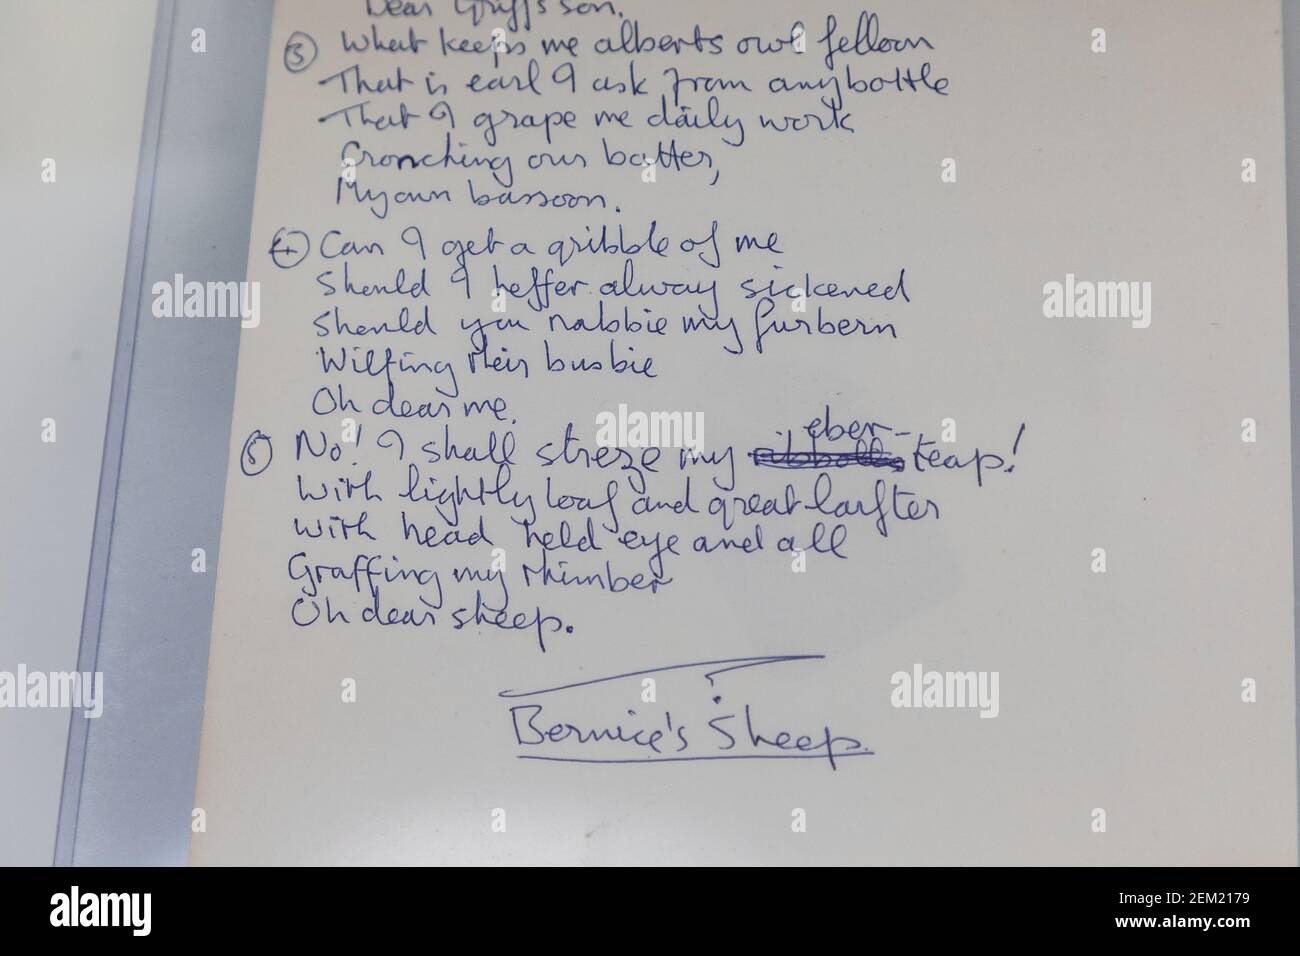 Dear Griffsson.
③ What keeps me alberts owl felloon
That is earl I ask from anybottle
That I grape me daily work
Cronching our batter,
My own bassoon.
④ Can I get a gribble of me
Should I heffer alway sickened
Should you nabbie my furbern
Wilfing their busbie
Oh dear me.
eber-
⑤ No! I shall streze my teap!
With lightly loaf and great larfter
With head held eye and all
Graffing my rhimber
Oh dear sheep.
Bernice's Sheep.
alamy
Image ID: 2EM2179
www.alamy.com